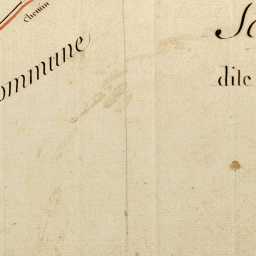 Chemin
ommune
dite